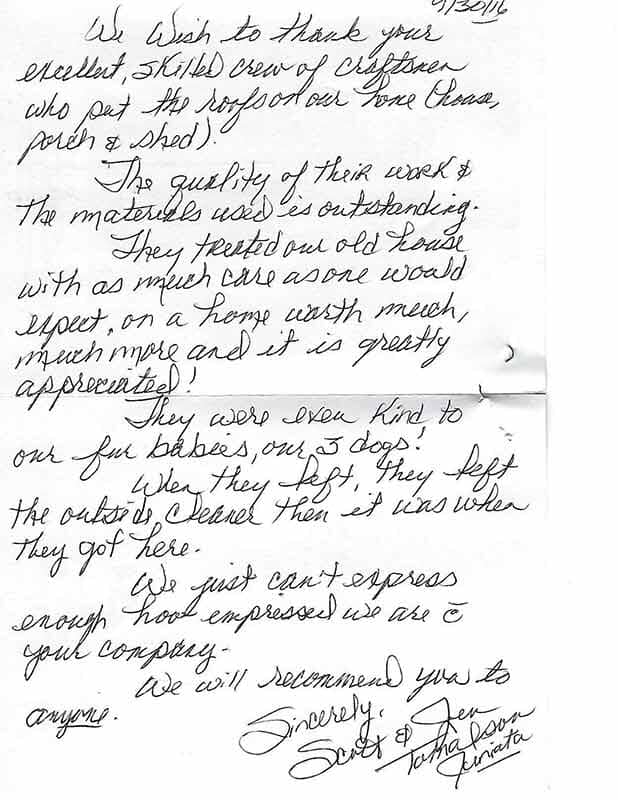 9/30/16
We Wish to thank your
excellent, skilled crew of craftsmen
who put the roofs on our home (house,
porch & shed).
The quality of their work &
the materials used is outstanding.
They treated our old house
with as much care as one would
expect, on a home worth much,
much more and it is greatly
appreciated!
They were even kind to
our fur babies, our 3 dogs!
When they left, they left
the outside cleaner then it was when
they got here.
We just can't express
enough how empressed we are c̄
your company.
We will recommend you to
anyone.
Sincerely,
Scott & Jen
Juniata